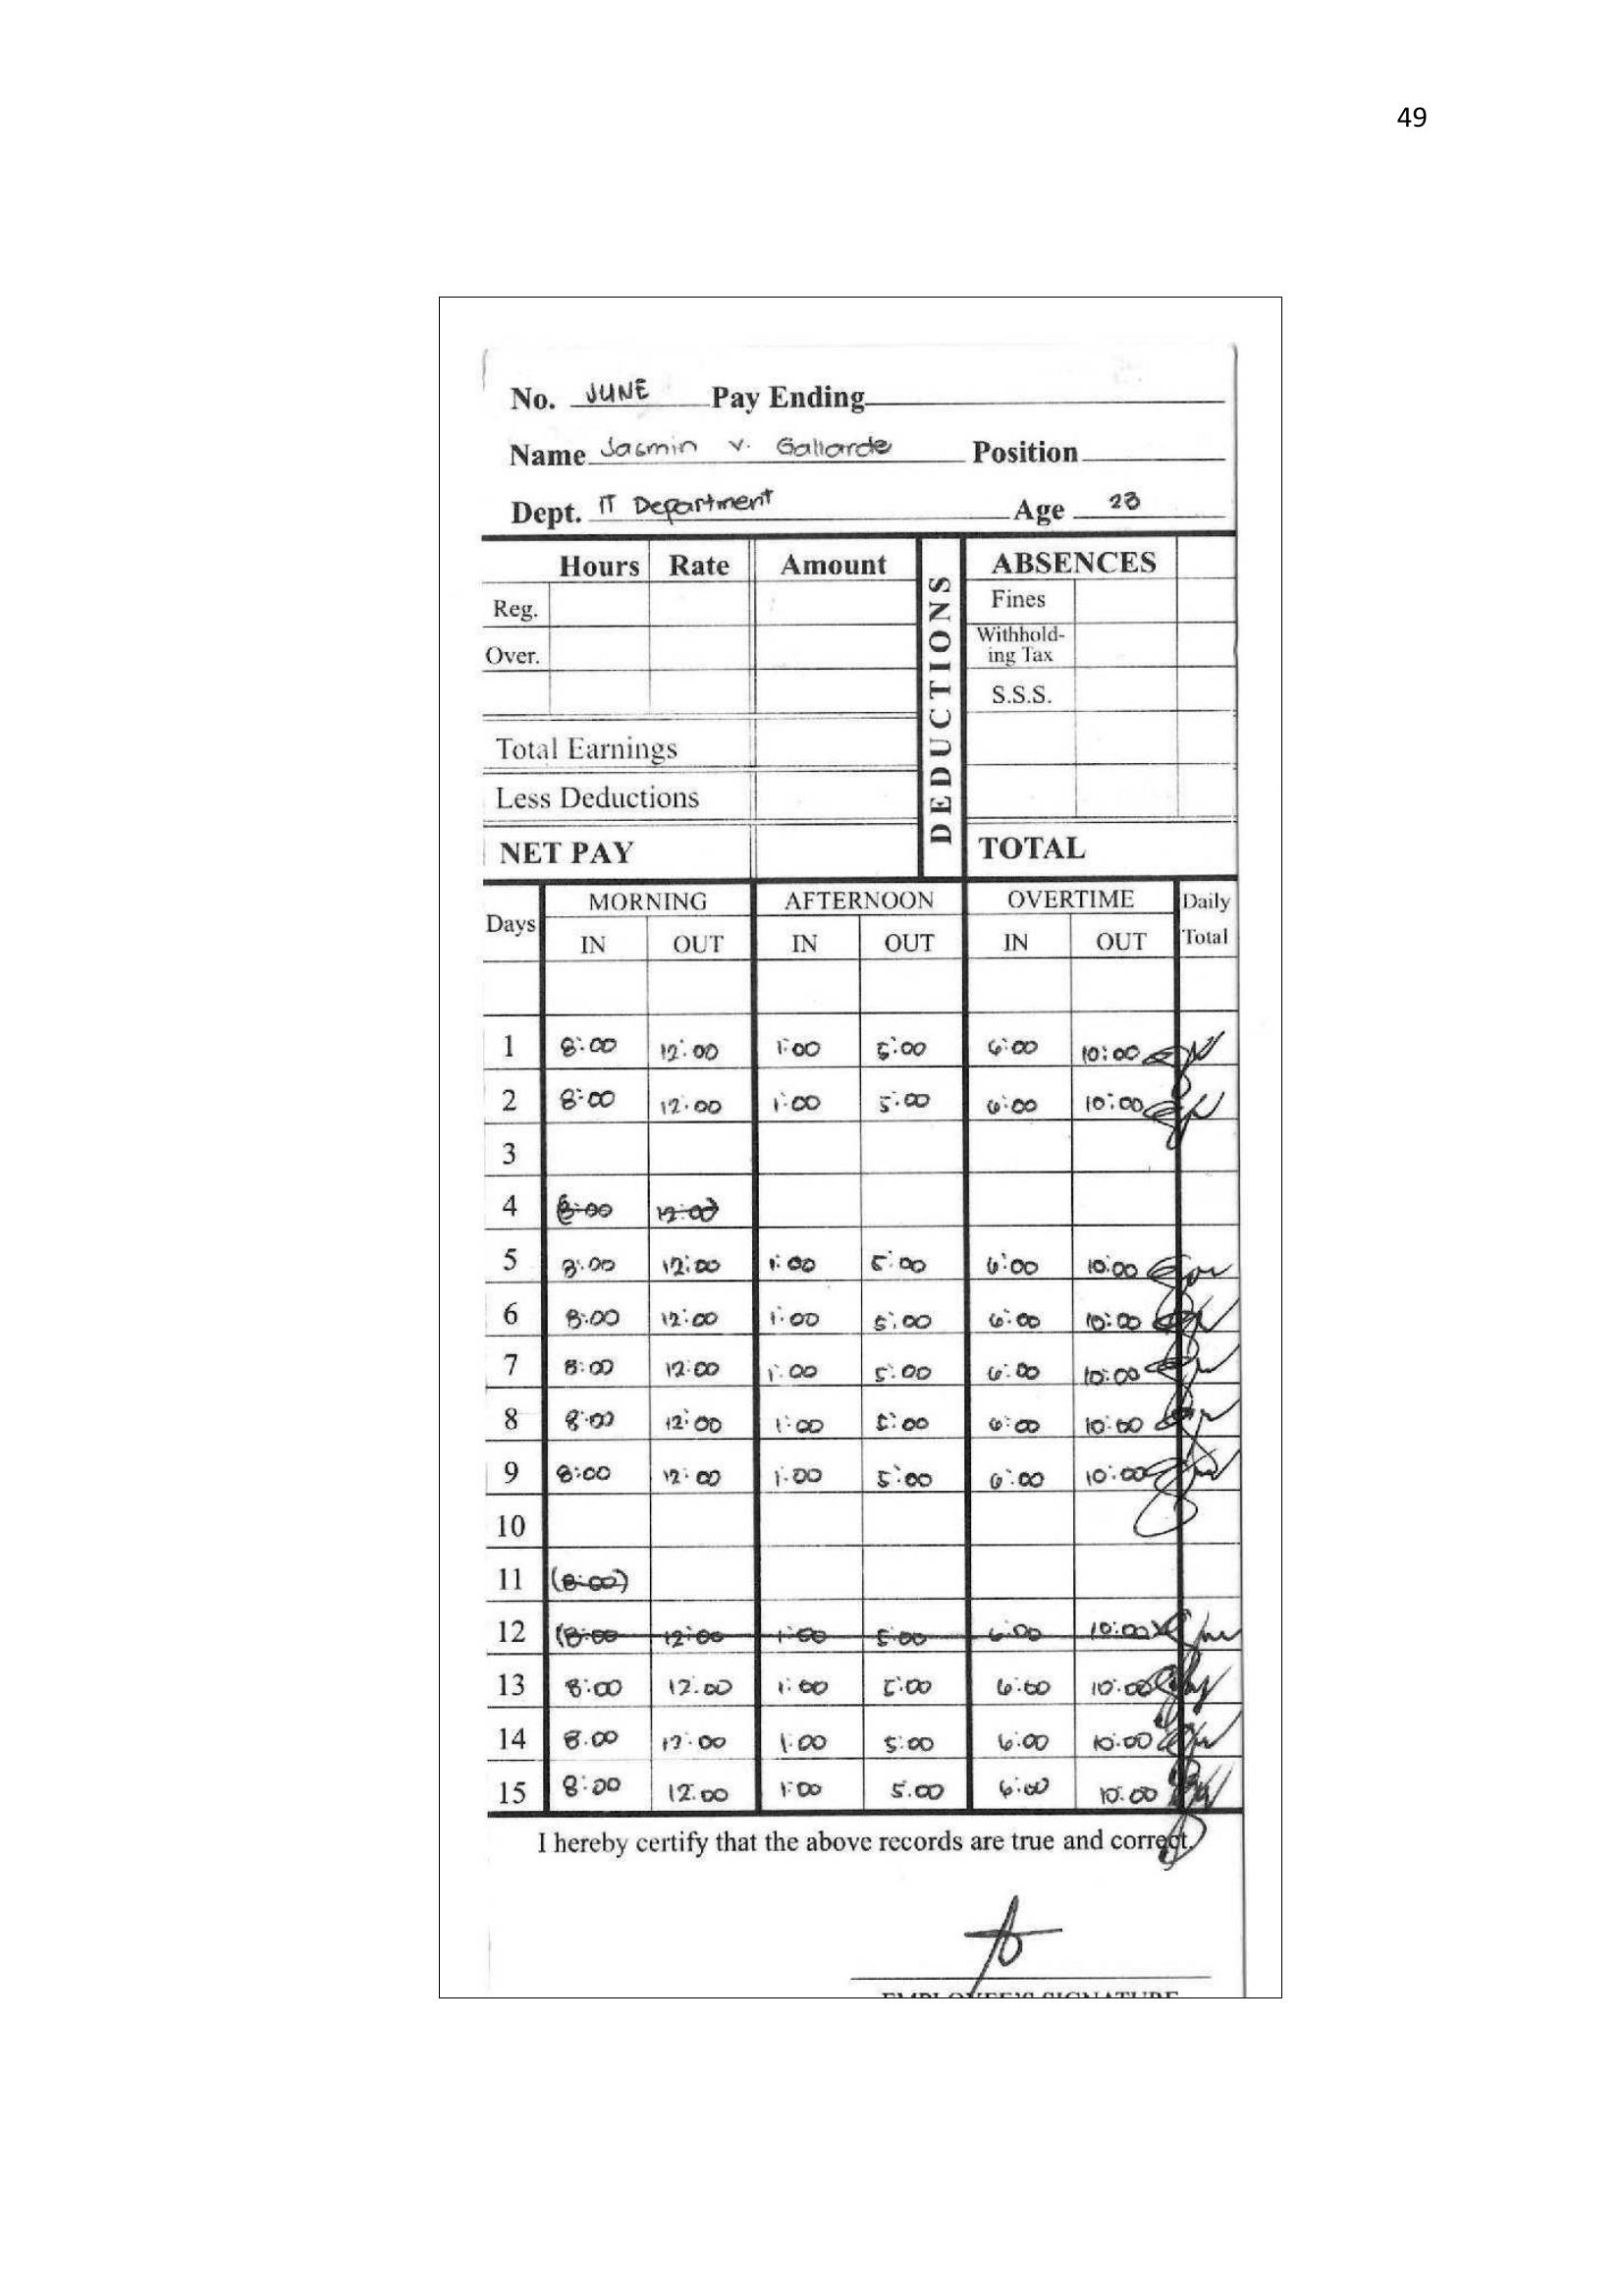 49
No. JUNE Pay Ending
Name Jasmin V. Gallarde Position
Dept. IT Department Age 23
Hours Rate Amount DEDUCTIONS ABSENCES
Reg. Fines
Over. Withhold-
ing Tax
S.S.S.
Total Earnings
Less Deductions
NET PAY TOTAL
Days MORNING AFTERNOON OVERTIME Daily
IN OUT IN OUT IN OUT Total
1 8:00 12:00 1:00 5:00 6:00 10:00
2 8:00 12:00 1:00 5:00 6:00 10:00
3
4 8:00 12:00
5 8:00 12:00 1:00 5:00 6:00 10:00
6 8:00 12:00 1:00 5:00 6:00 10:00
7 8:00 12:00 1:00 5:00 6:00 10:00
8 8:00 12:00 1:00 5:00 6:00 10:00
9 8:00 12:00 1:00 5:00 6:00 10:00
10
11 (8:00)
12 (8:00 12:00 1:00 5:00 6:00 10:00)
13 8:00 12:00 1:00 5:00 6:00 10:00
14 8:00 12:00 1:00 5:00 6:00 10:00
15 8:00 12:00 1:00 5:00 6:00 10:00
I hereby certify that the above records are true and correct.
EMPLOYEE'S SIGNATURE